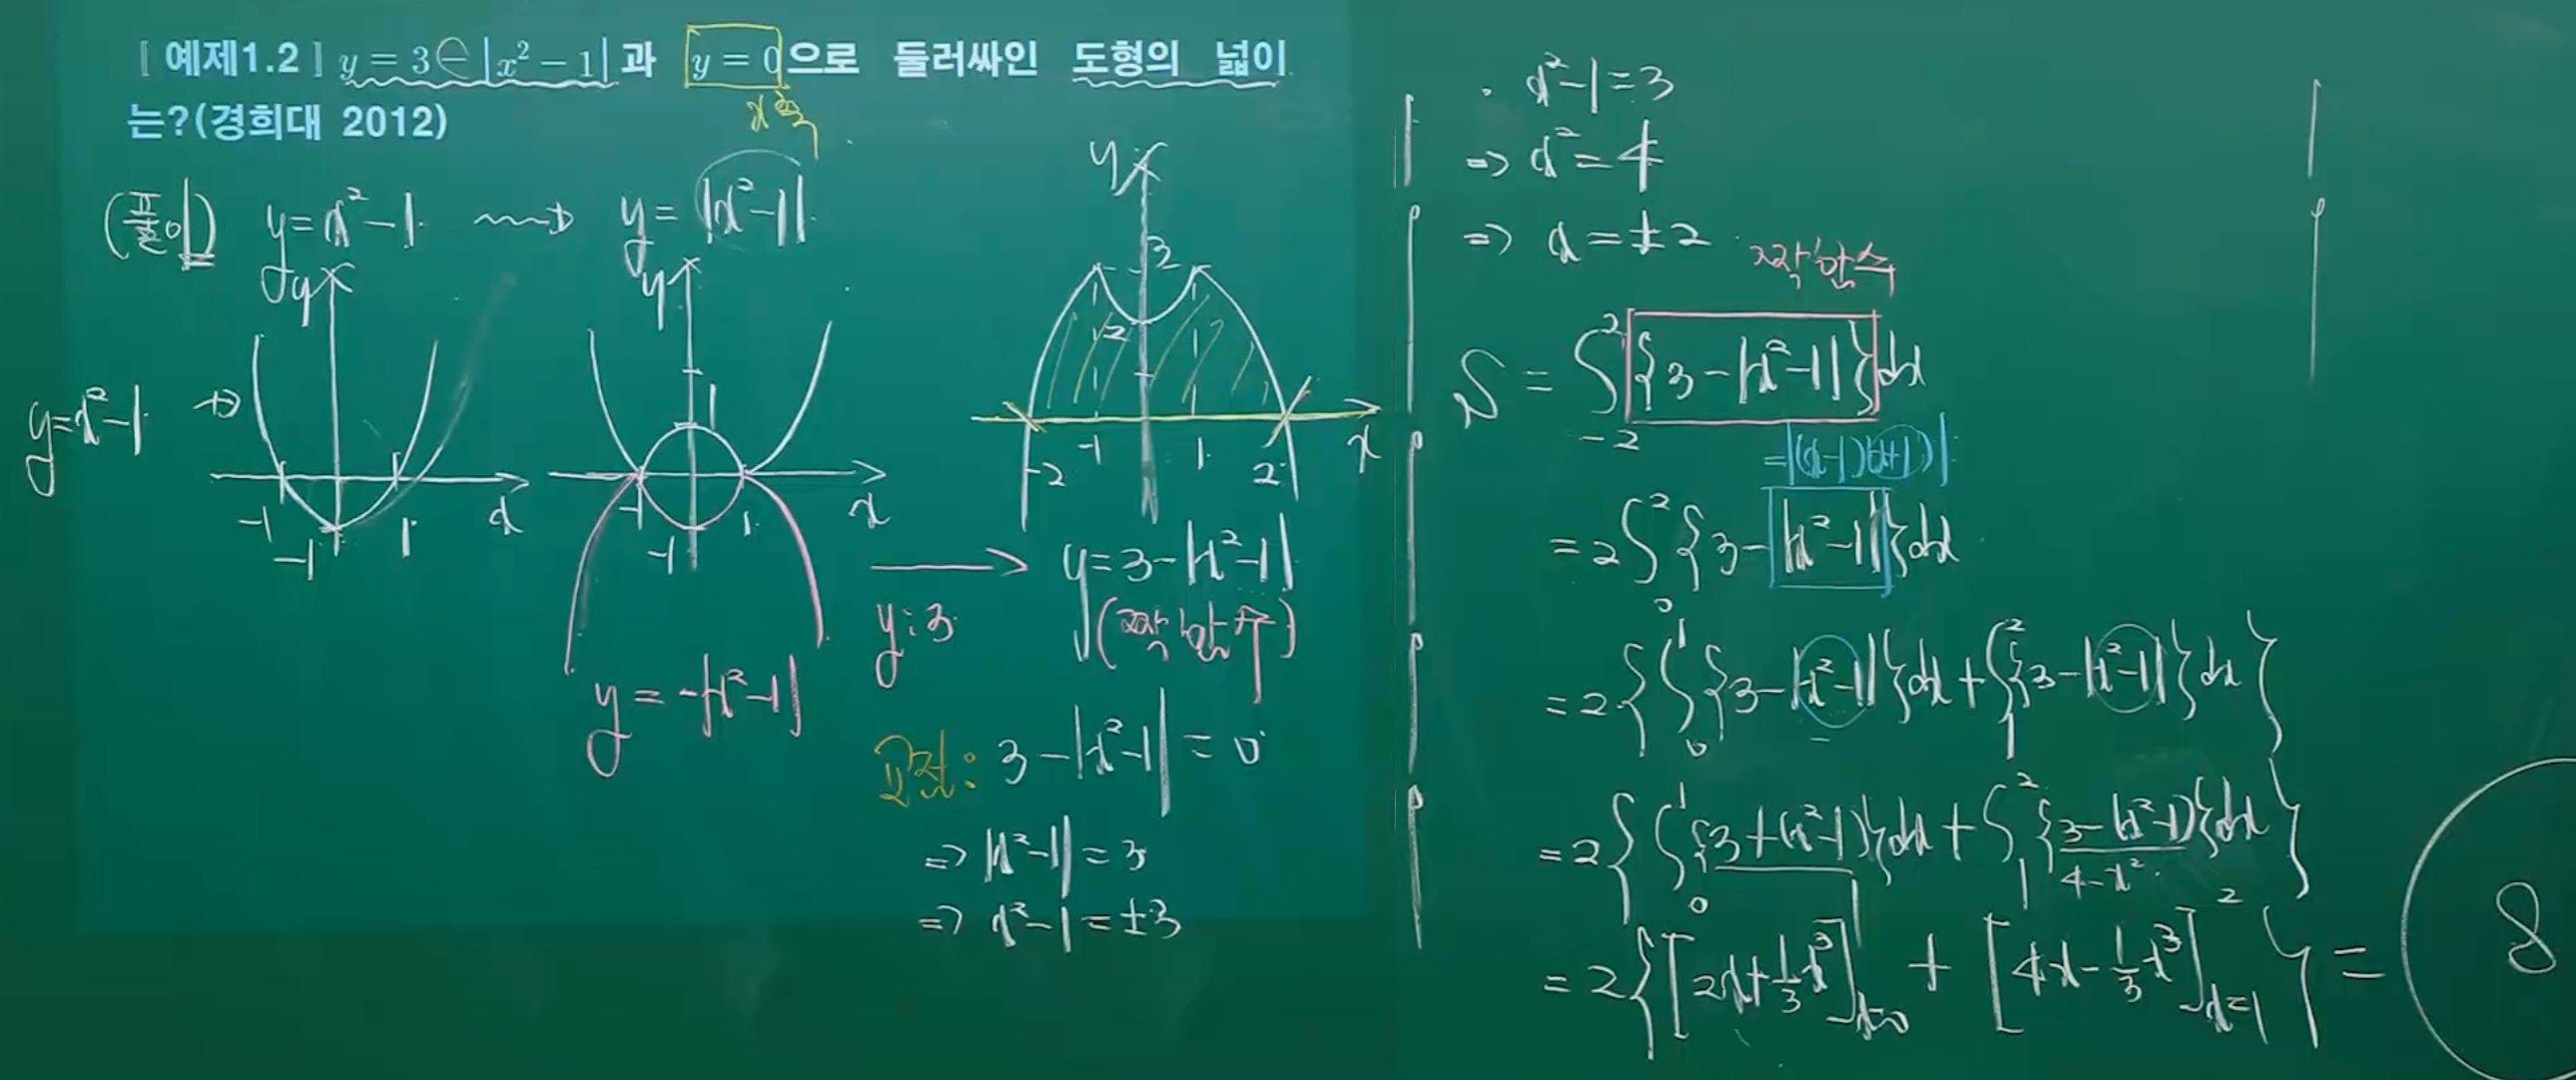 [ 예제1.2 ] y = 3 - |x² - 1| 과 y = 0 으로 둘러싸인 도형의 넓이
는?(경희대 2012)
x축
(풀이) y = x² - 1 y = |x² - 1|
y
-1 1 x
-1
y = x² - 1 →
y
1
-1 1 x
-1
y = -|x² - 1|
y : 3
y
3
2
-2 -1 1 2 x
y = 3 - |x² - 1|
(짝함수)
교점: 3 - |x² - 1| = 0
⇒ |x² - 1| = 3
⇒ x² - 1 = ±3
· x² - 1 = 3
⇒ x² = 4
⇒ x = ±2
짝함수
S = ∫₋₂² {3 - |x² - 1|} dx
= |(x-1)(x+1)|
= 2∫₀² {3 - |x² - 1|} dx
= 2{∫₀¹ {3 - |x² - 1|} dx + ∫₁² {3 - |x² - 1|} dx}
= 2{∫₀¹ {3 + (x² - 1)} dx + ∫₁² {3 - (x² - 1)} dx}
4 - x²
= 2{[2x + 1/3 x³]ₓ₌₀¹ + [4x - 1/3 x³]ₓ₌₁²} = 8